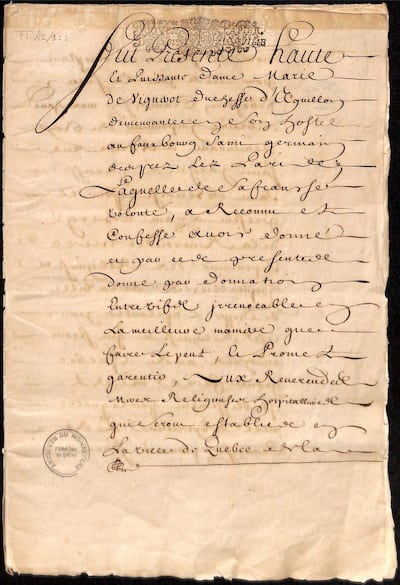 Fut Presente haute
Et Puissante dame Marie
de Vignerot duchesse d'Eguillon
demeurante en son hostel
au faux bourg Saint germain
des prez Lez Paris
Laquelle de sa franche
volonté, a Reconnu et
Confessé avoir donné
et par ces presentes
donne par donnation
Entre vifs irrevocable en
La meilleure maniere que
faire se peut, et Promet
garentir, Aux Reverendes
Meres Religieuses hospitallieres
qui seront establies en
La ville de Quebec
ARCHIVES DU MONASTERE